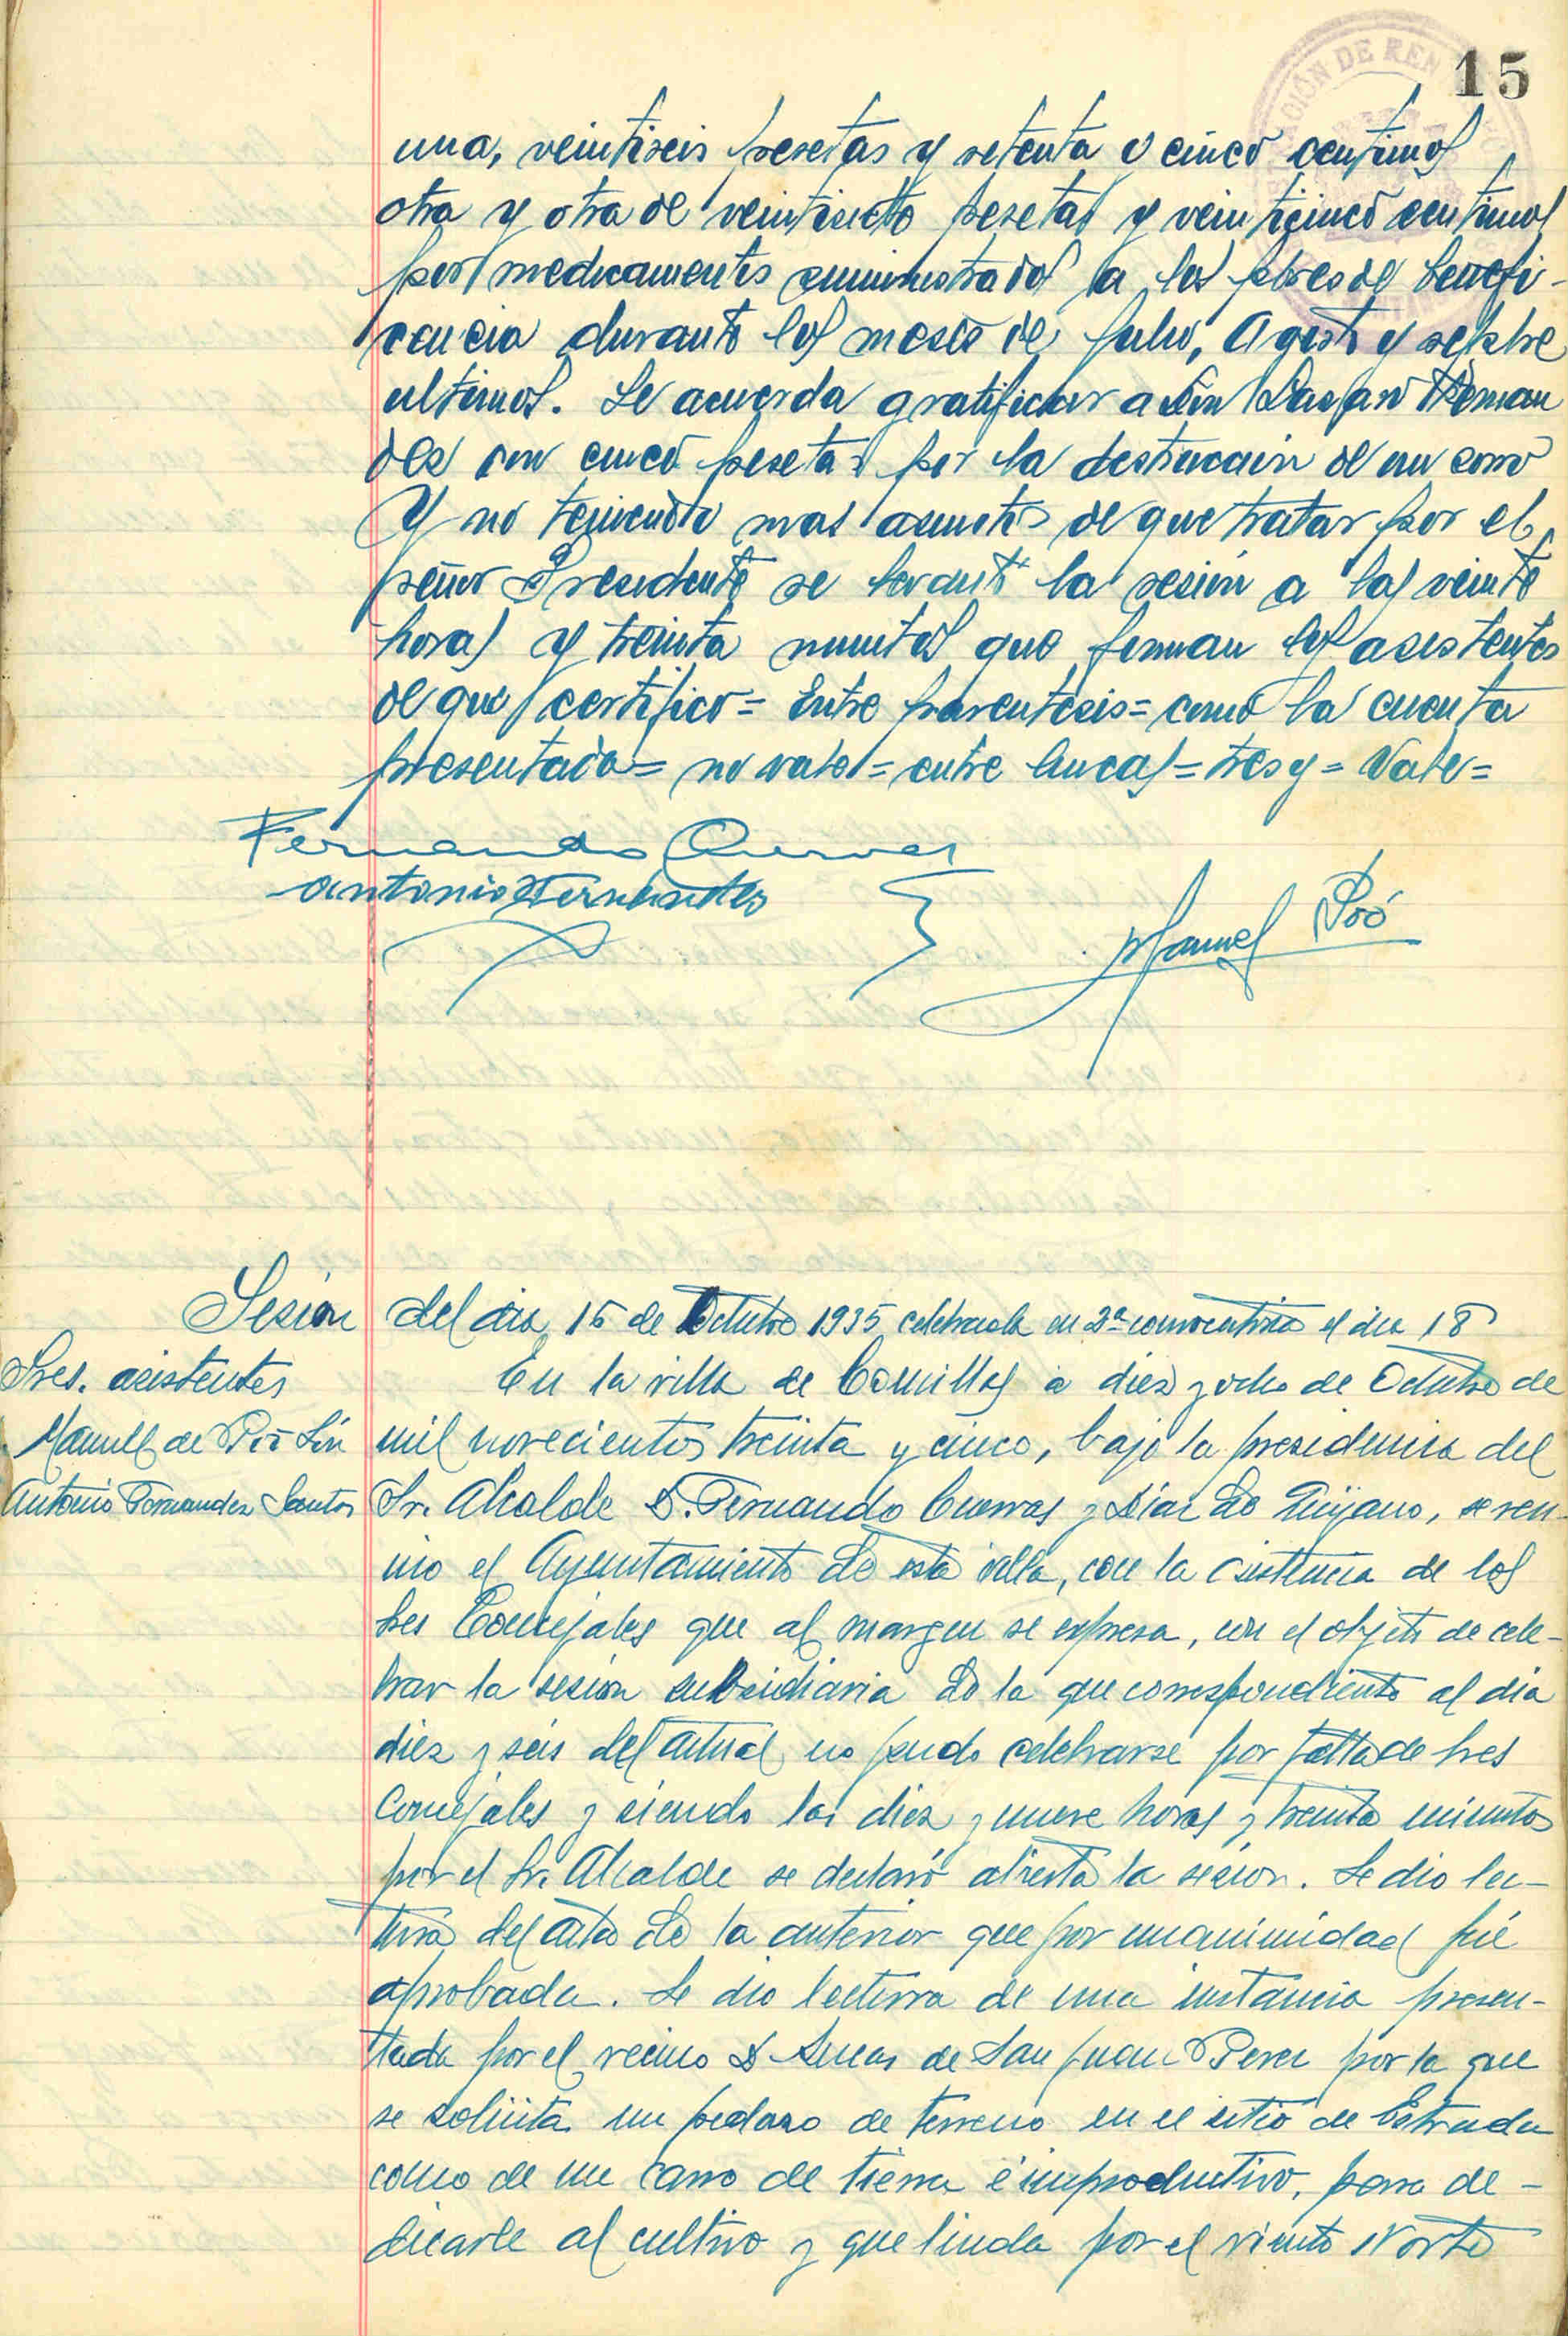 15
una, veintiseis pesetas y setenta y cinco centimos
otra y otra de veintiocho pesetas y veinticinco centimos
por medicamentos suministrados a los pbres de benefi-
cencia durante los meses de Julio, Agosto y sepbre
ultimos. Se acuerda gratificar a Don Hernan
dez con cinco pesetas por la destrucción de un zorro
Y no teniendo mas asuntos de que tratar por el
señor Presidente se levantó la sesión a las veinte
horas y treinta minutos que firman los asistentes
de que certifico = Entre parentesis = como la cuenta
presentada = no vale = entre lineas = tres y = Vale =
Fernando Cuevas
Antonio Fernandez
Manuel Poó
Sesión del dia 16 de Octubre 1935 celebrada en 2ª convocatoria el dia 18
Sres. asistentes
Manuel de Poó
Antonio Fernandez Santos
En la villa de Comillas a diez y ocho de Octubre de
mil novecientos treinta y cinco, bajo la presidencia del
Sr. Alcalde D. Fernando Cuevas y Díaz de Quijano, se reu-
nio el Ayuntamiento de esta villa, con la asistencia de los
Sres Concejales que al margen se expresa, con el objeto de cele-
brar la sesión subsidiaria de la que correspondiente al dia
diez y seis del actual no pudo celebrarse por falta de Sres
Concejales y siendo las diez y nueve horas y treinta minutos
por el Sr. Alcalde se declaró abierta la sesion. Se dio lec-
tura del acta de la anterior que por unanimidad fué
aprobada. Se dio lectura de una instancia presen-
tada por el vecino D Lucas de San Juan Perez por la que
se solicita un pedazo de terreno en el sitio de Estrada
como de un carro de tierra é improductivo, para de-
dicarle al cultivo y que linda por el viento Norte